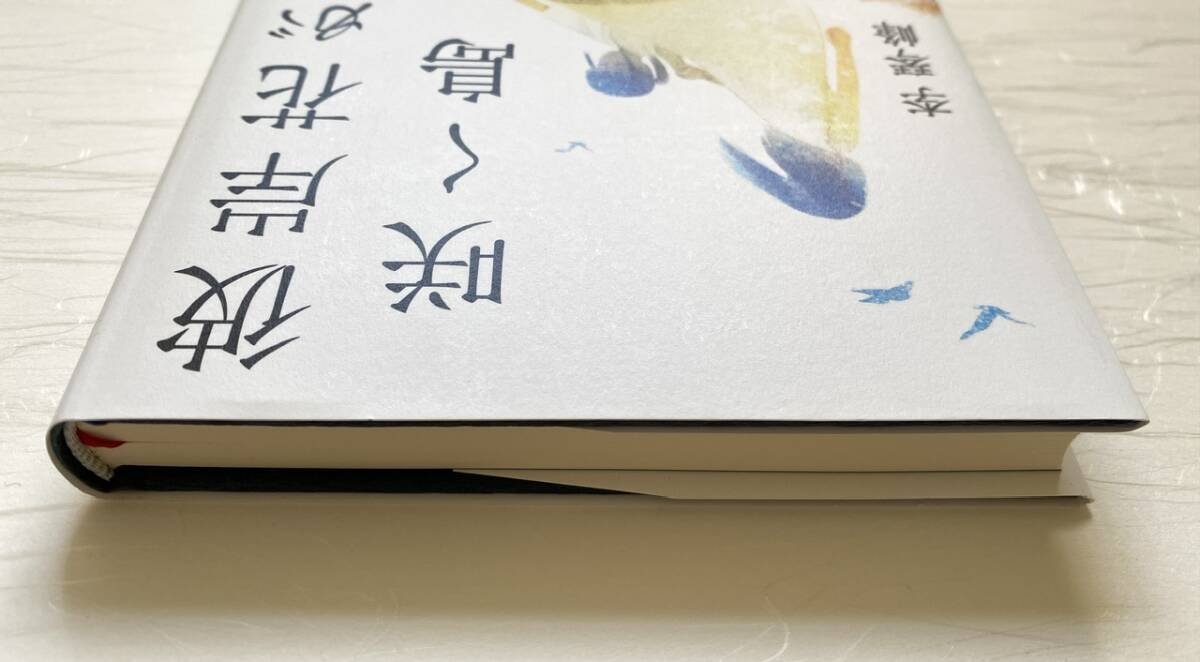 彼岸花が
咲く島
李琴峰